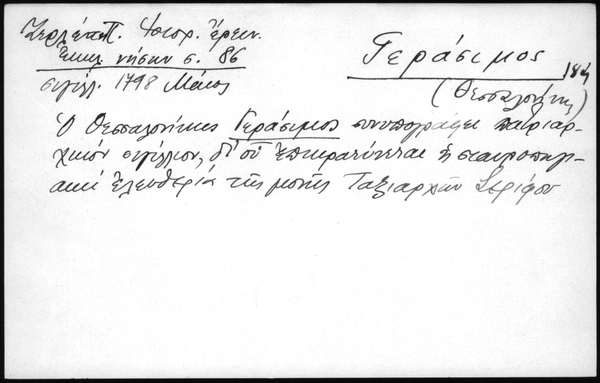 Ζερλέντ Π. Ἱστορ. ἔρευν.
Ἐκκλ. νήσων σ. 86
σιγίλλ. 1798 Μάιος
Γεράσιμος
(Θεσσαλονίκης)
Ὁ Θεσσαλονίκης Γεράσιμος συνυπογράφει πατριαρ-
χικόν σιγίλλιον, δι' οὗ ἐπικρατύνεται ἡ σταυροπηγι-
ακή ἐλευθερία τῆς μονῆς Ταξιαρχῶν Σερίφου